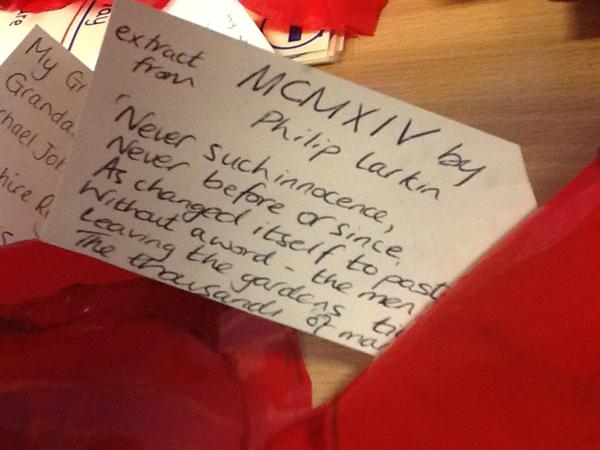 extract
from
MCMXIV by
Philip Larkin
'Never such innocence,
Never before or since,
As changed itself to past
Without a word - the men
Leaving the gardens
The thousands of
My
Granda